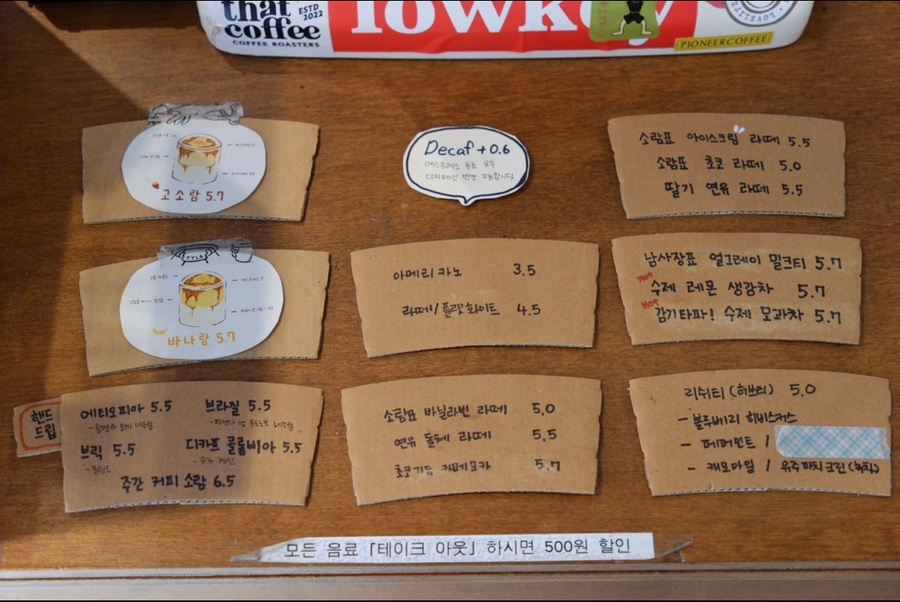 that
coffee
ESTD
2022
COFFEE ROASTERS
lowkey
PIONEERCOFFEE
고소람 5.7
Decaf +0.6
에스프레소 음료
디카페인 변경 가능합니다.
소람표 아이스크림 라떼 5.5
소람표 초코 라떼 5.0
딸기 연유 라떼 5.5
바나람 5.7
아메리카노 3.5
라떼/플랫화이트 4.5
남사장표 얼그레이 밀크티 5.7
Hot
수제 레몬 생강차 5.7
Hot
감기타파! 수제 모과차 5.7
핸드
드립
에티오피아 5.5
브라질 5.5
브릭 5.5
- 블렌드
디카프 콜롬비아 5.5
주간 커피 소람 6.5
소람표 바닐라빈 라떼 5.0
연유 돌체 라떼 5.5
초코기득 카페모카 5.7
리쉬티 (허브티) 5.0
- 블루베리 히비스커스
- 페퍼민트 /
- 캐모마일 / 유주피치그린 (녹차)
모든 음료 「테이크 아웃」 하시면 500원 할인